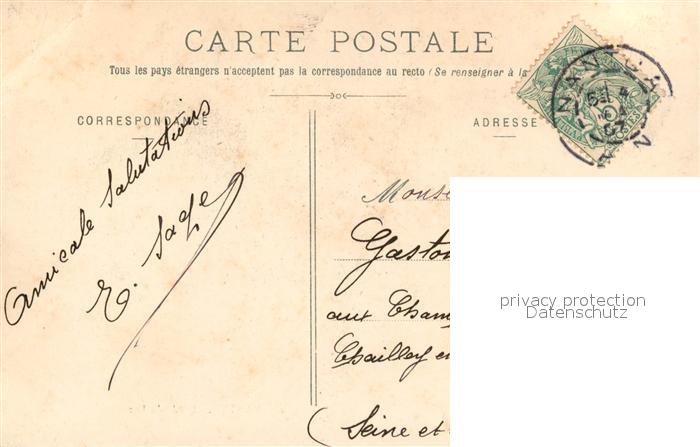 CARTE POSTALE
Tous les pays étrangers n'acceptent pas la correspondance au recto (Se renseigner à la
CORRESPONDANCE
ADRESSE
Amicale Salutations
E. Sage
Monse
Gaston
aux Cham
Chailley en
(Seine et
privacy protection
Datenschutz